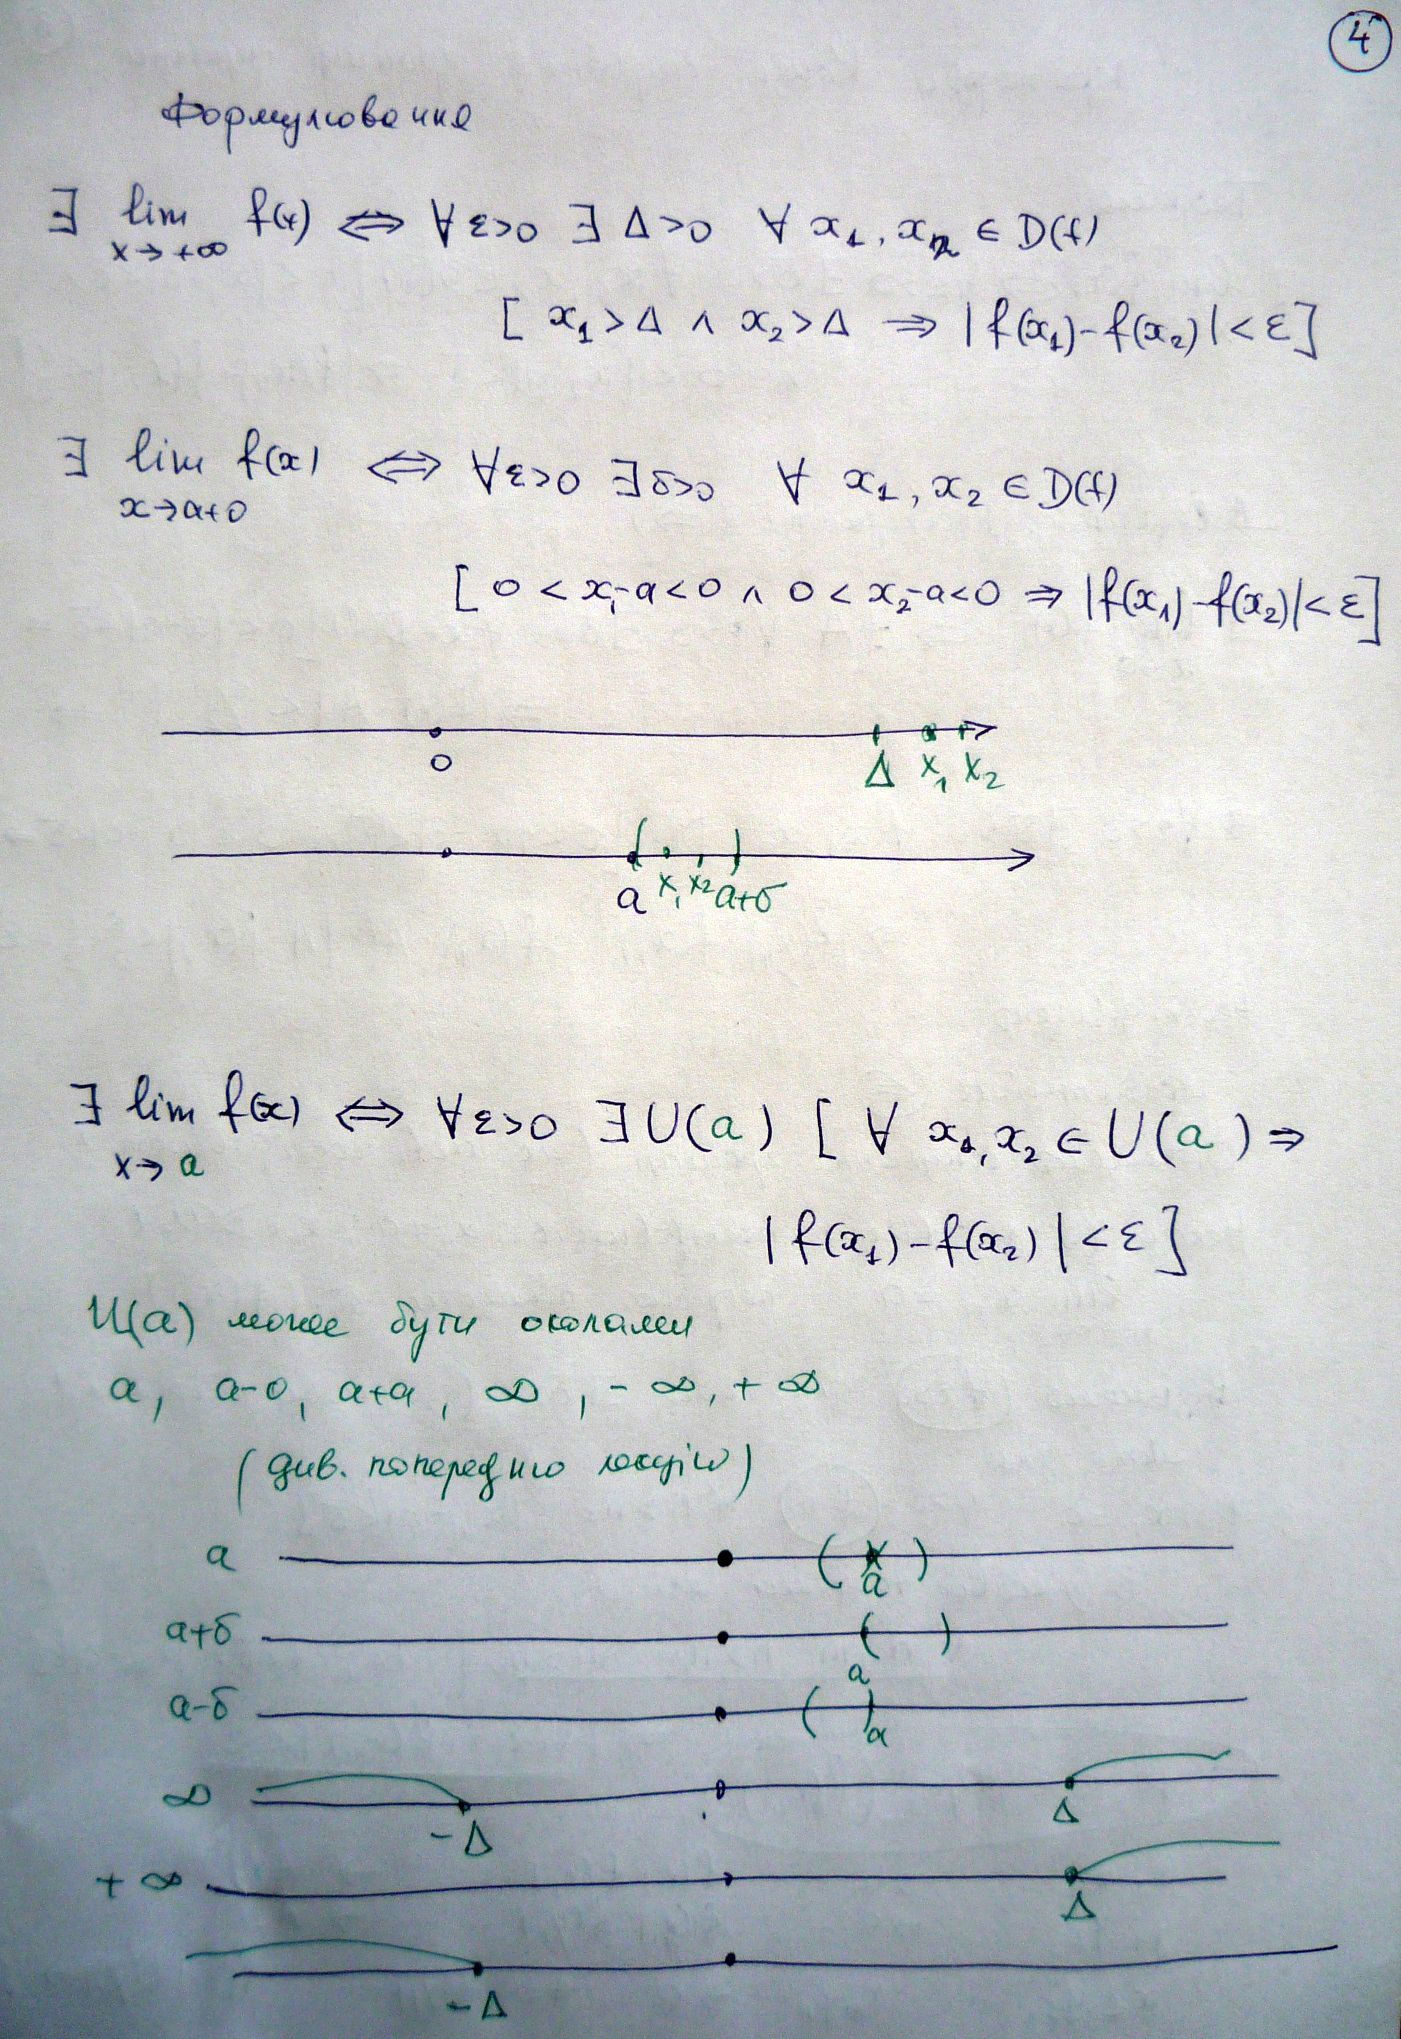 4
Формулювання
∃ lim f(x) ⇔ ∀ε>0 ∃ Δ>0 ∀ x₁, x₂ ∈ D(f)
x→+∞
[ x₁>Δ ∧ x₂>Δ ⇒ |f(x₁)-f(x₂)|<ε]
∃ lim f(x) ⇔ ∀ε>0 ∃δ>0 ∀ x₁, x₂ ∈ D(f)
x→a+0
[ 0<x₁-a<0 ∧ 0<x₂-a<0 ⇒ |f(x₁)-f(x₂)|<ε]
0 Δ x₁ x₂
a x₁ x₂ a+δ
∃ lim f(x) ⇔ ∀ε>0 ∃U(a) [ ∀ x₁, x₂ ∈ U(a) ⇒
x→a
|f(x₁)-f(x₂)|<ε]
U(a) може бути околами
a, a-0, a+a, ∞, -∞, +∞
(див. попередню лекцію)
a ( a )
a+δ ( )
a
a-δ ( a
∞
-Δ Δ
+∞
Δ
-Δ